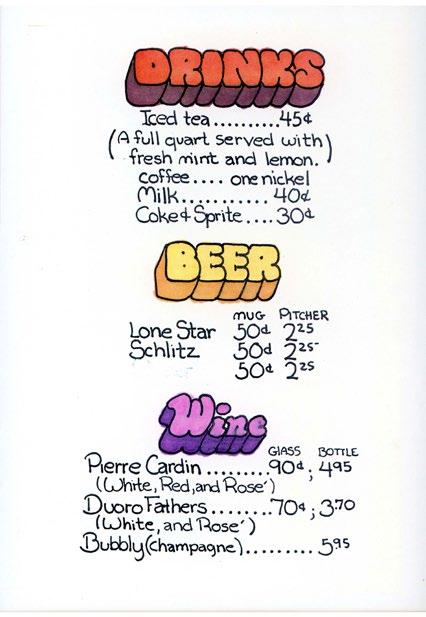 DRINKS
Iced tea..........45¢
(A full quart served with
fresh mint and lemon.)
coffee.... one nickel
Milk............40¢
Coke & Sprite....30¢
BEER
MUG PITCHER
Lone Star 50¢ 2.25
Schlitz 50¢ 2.25
50¢ 2.25
Wine
GLASS BOTTLE
Pierre Cardin........90¢; 4.95
(White, Red, and Rose')
Duoro Fathers........70¢; 3.70
(White, and Rose')
Bubbly (champagne)......... 5.95